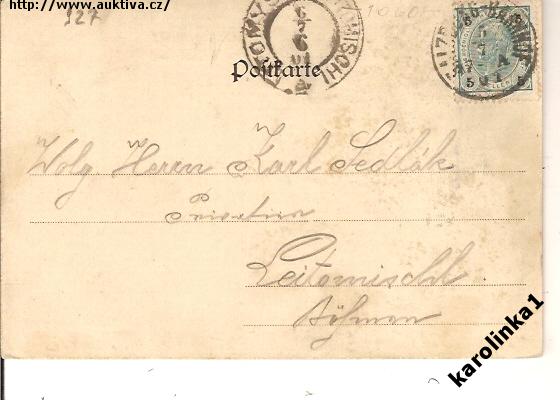 http://www.auktiva.cz/
927
Postkarte
Wolg Herrn Karl Sedlák
Privatier
Leitomischl
Böhmen
karolinka1